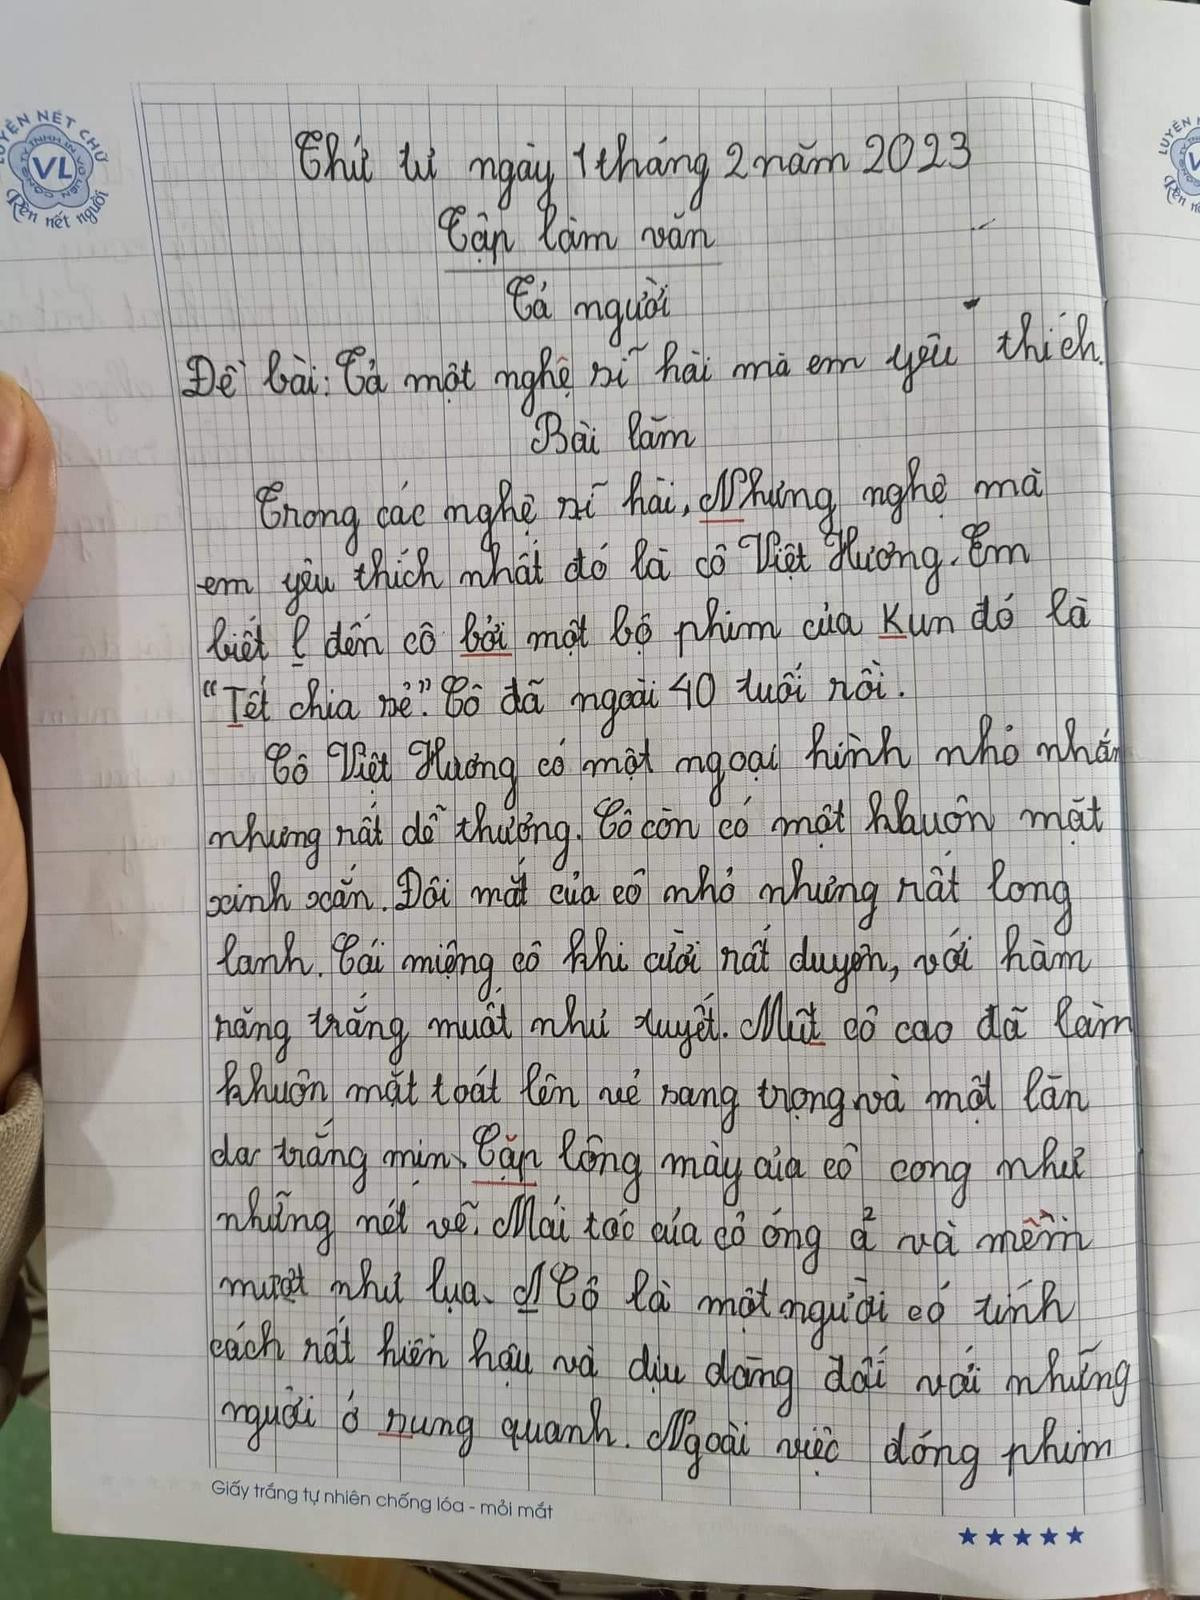 LUYỆN NÉT CHỮ
VL
Rèn nết người
Thứ tư ngày 1 tháng 2 năm 2023
Tập làm văn
Tả người
Đề bài: Tả một nghệ sĩ hài mà em yêu thích.
Bài làm
Trong các nghệ sĩ hài, Nhưng nghệ mà
em yêu thích nhất đó là cô Việt Hương. Em
biết l đến cô bởi một bộ phim của Kun đó là
“Tết chia sẻ”. Cô đã ngoài 40 tuổi rồi.
Cô Việt Hương có một ngoại hình nhỏ nhắn
nhưng rất dễ thương. Cô còn có một khuôn mặt
xinh xắn. Đôi mắt của cô nhỏ nhưng rất long
lanh. Cái miệng cô khi cười rất duyên, với hàm
răng trắng muất như tuyết. Mũi cô cao đã làm
khuôn mặt toát lên vẻ sang trọng và một làn
da trắng mịn. Cặp lông mày của cô cong như
những nét vẽ. Mái tóc của cô óng ả và mềm
mượt như lụa. N Cô là một người có tính
cách rất hiền hậu và dịu dàng đối với những
người ở sung quanh. Ngoài việc đóng phim
Giấy trắng tự nhiên chống lóa - mỏi mắt